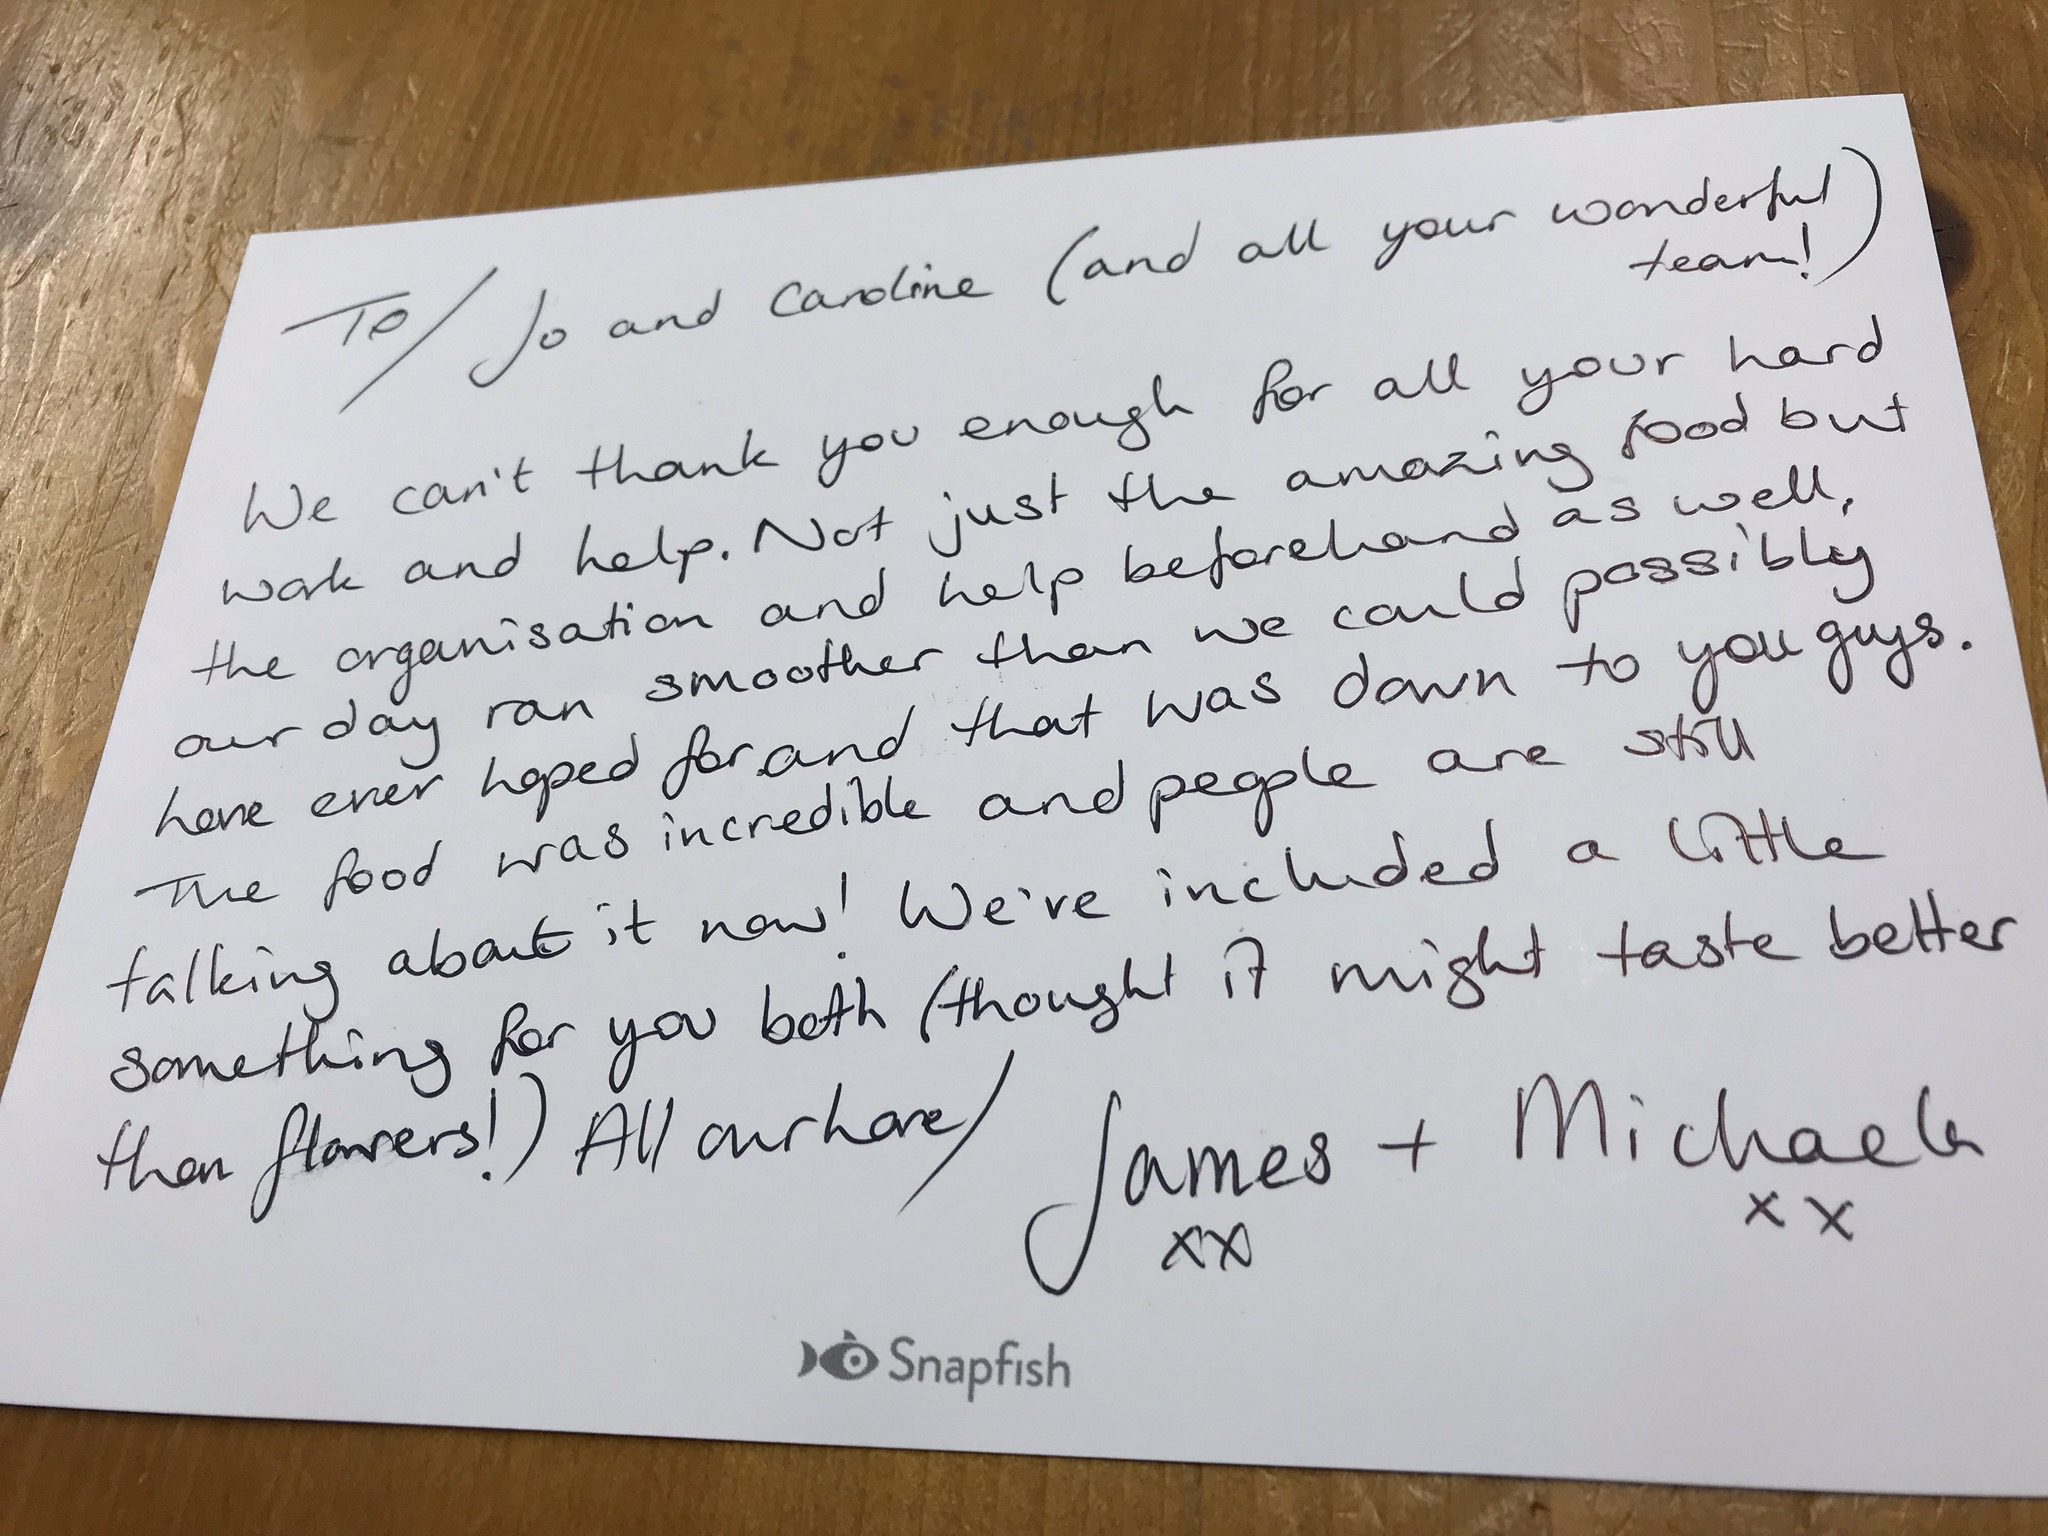 To/ Jo and Caroline (and all your wonderful
team!)
We can't thank you enough for all your hard
work and help. Not just the amazing food but
the organisation and help beforehand as well,
our day ran smoother than we could possibly
have ever hoped for and that was down to you guys.
The food was incredible and people are still
talking about it now! We've included a little
something for you both (thought it might taste better
than flowers!) All our love/ James + Michaela
xx xx
Snapfish